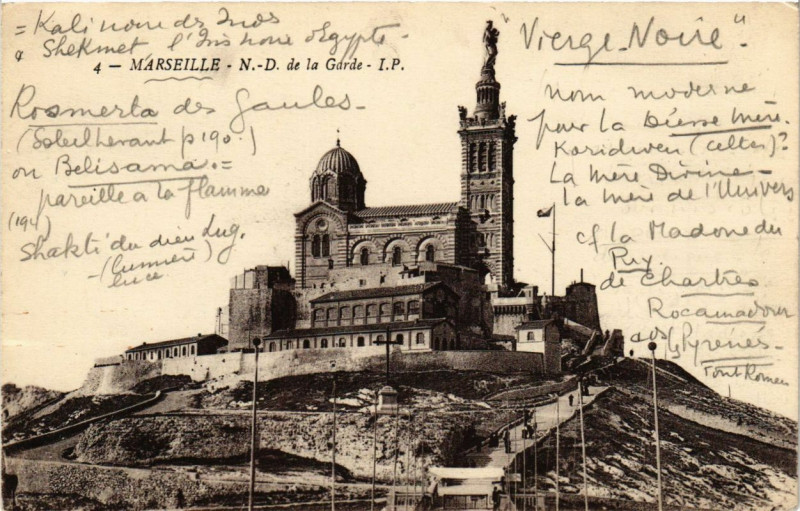 = Kali noire des Indes
Shekmet l'Isis noire d'Egypte -
4 — MARSEILLE - N.-D. de la Garde - I.P.
Rosmerta des Gaules -
(Soleil p 190.)
ou Belisama =
pareille à la flamme
(191)
Shakti du dieu Lug.
- (lumière)
luce
"Vierge Noire".
nom moderne
pour la Déesse Mère.
Karidwen (celtes)?
La Mère Divine -
la mère de l'Univers
cf la Madone du
Puy.
de Chartres
Rocamadour
Pyrénées -
Font Romeu